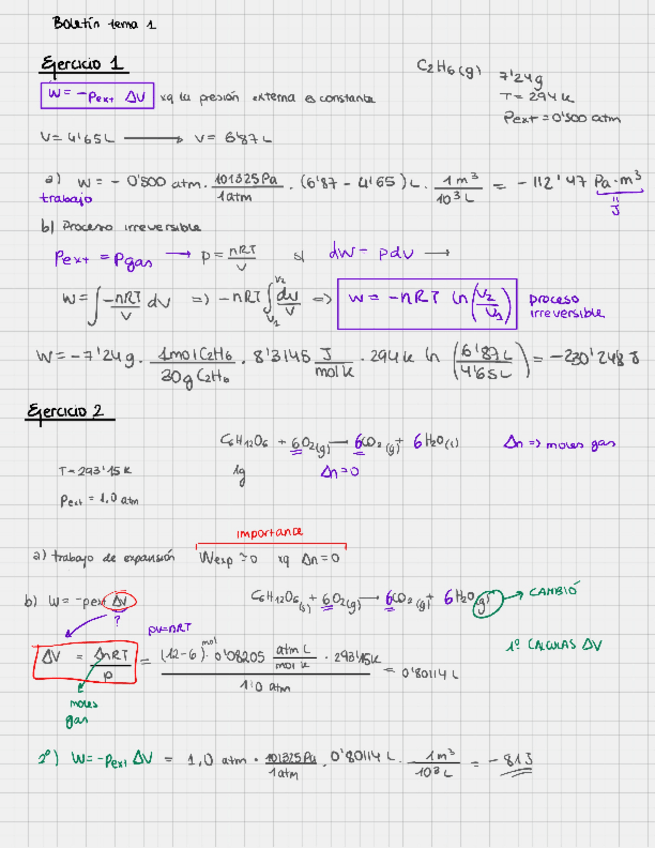 Boletín tema 1
Ejercicio 1
C2H6(g) 7'24g
T = 294 K
Pext = 0'500 atm
W = -Pext ΔV xq la presión externa es constante
V = 4'65L ⟶ V = 6'87 L
a) W = - 0'500 atm · 101325 Pa / 1 atm · (6'87 - 4'65) L · 1 m³ / 10³ L = - 112'47 Pa·m³
trabajo
= J
b) Proceso irreversible
Pext = Pgas ⟶ p = nRT / V si dW - pdv ⟶
W = ∫ -nRT / V dv => -nRT ∫ V1 V2 dv / V => W = -nRT ln (V2 / V1) proceso irreversible
W = -7'24 g · 1 mol C2H6 / 30 g C2H6 · 8'3145 J / mol K · 294 K ln (6'87 L / 4'65 L) = -230'248 J
Ejercicio 2
C6H12O6 + 6O2(g) ⟶ 6CO2(g) + 6H2O(l) Δn => moles gas
1g Δn=0
T = 293'15 K
Pext = 1,0 atm
importance
a) trabajo de expansión Wexp ≃ 0 xq Δn = 0
b) W = -pext ΔV C6H12O6(s) + 6O2(g) ⟶ 6CO2(g) + 6H2O(g) → CAMBIÓ
?
pv=nRT
1º CALCULAS ΔV
ΔV = ΔnRT / p = (12-6) mol · 0'08205 atm L / mol K · 293'15K / 1'0 atm = 0'80114 L
moles
gas
2º) W = -Pext ΔV = 1,0 atm · 101325 Pa / 1 atm · 0'80114 L · 1 m³ / 10³ L = - 81 J